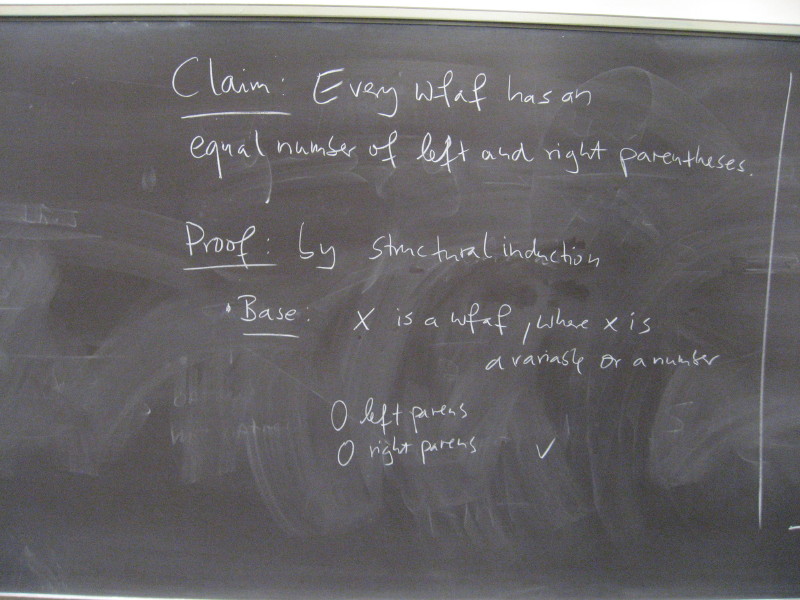 Claim: Every wfaf has an
equal number of left and right parentheses.
Proof: by structural induction
• Base: x is a wfaf, where x is
a variable or a number
0 left parens
0 right parens ✓